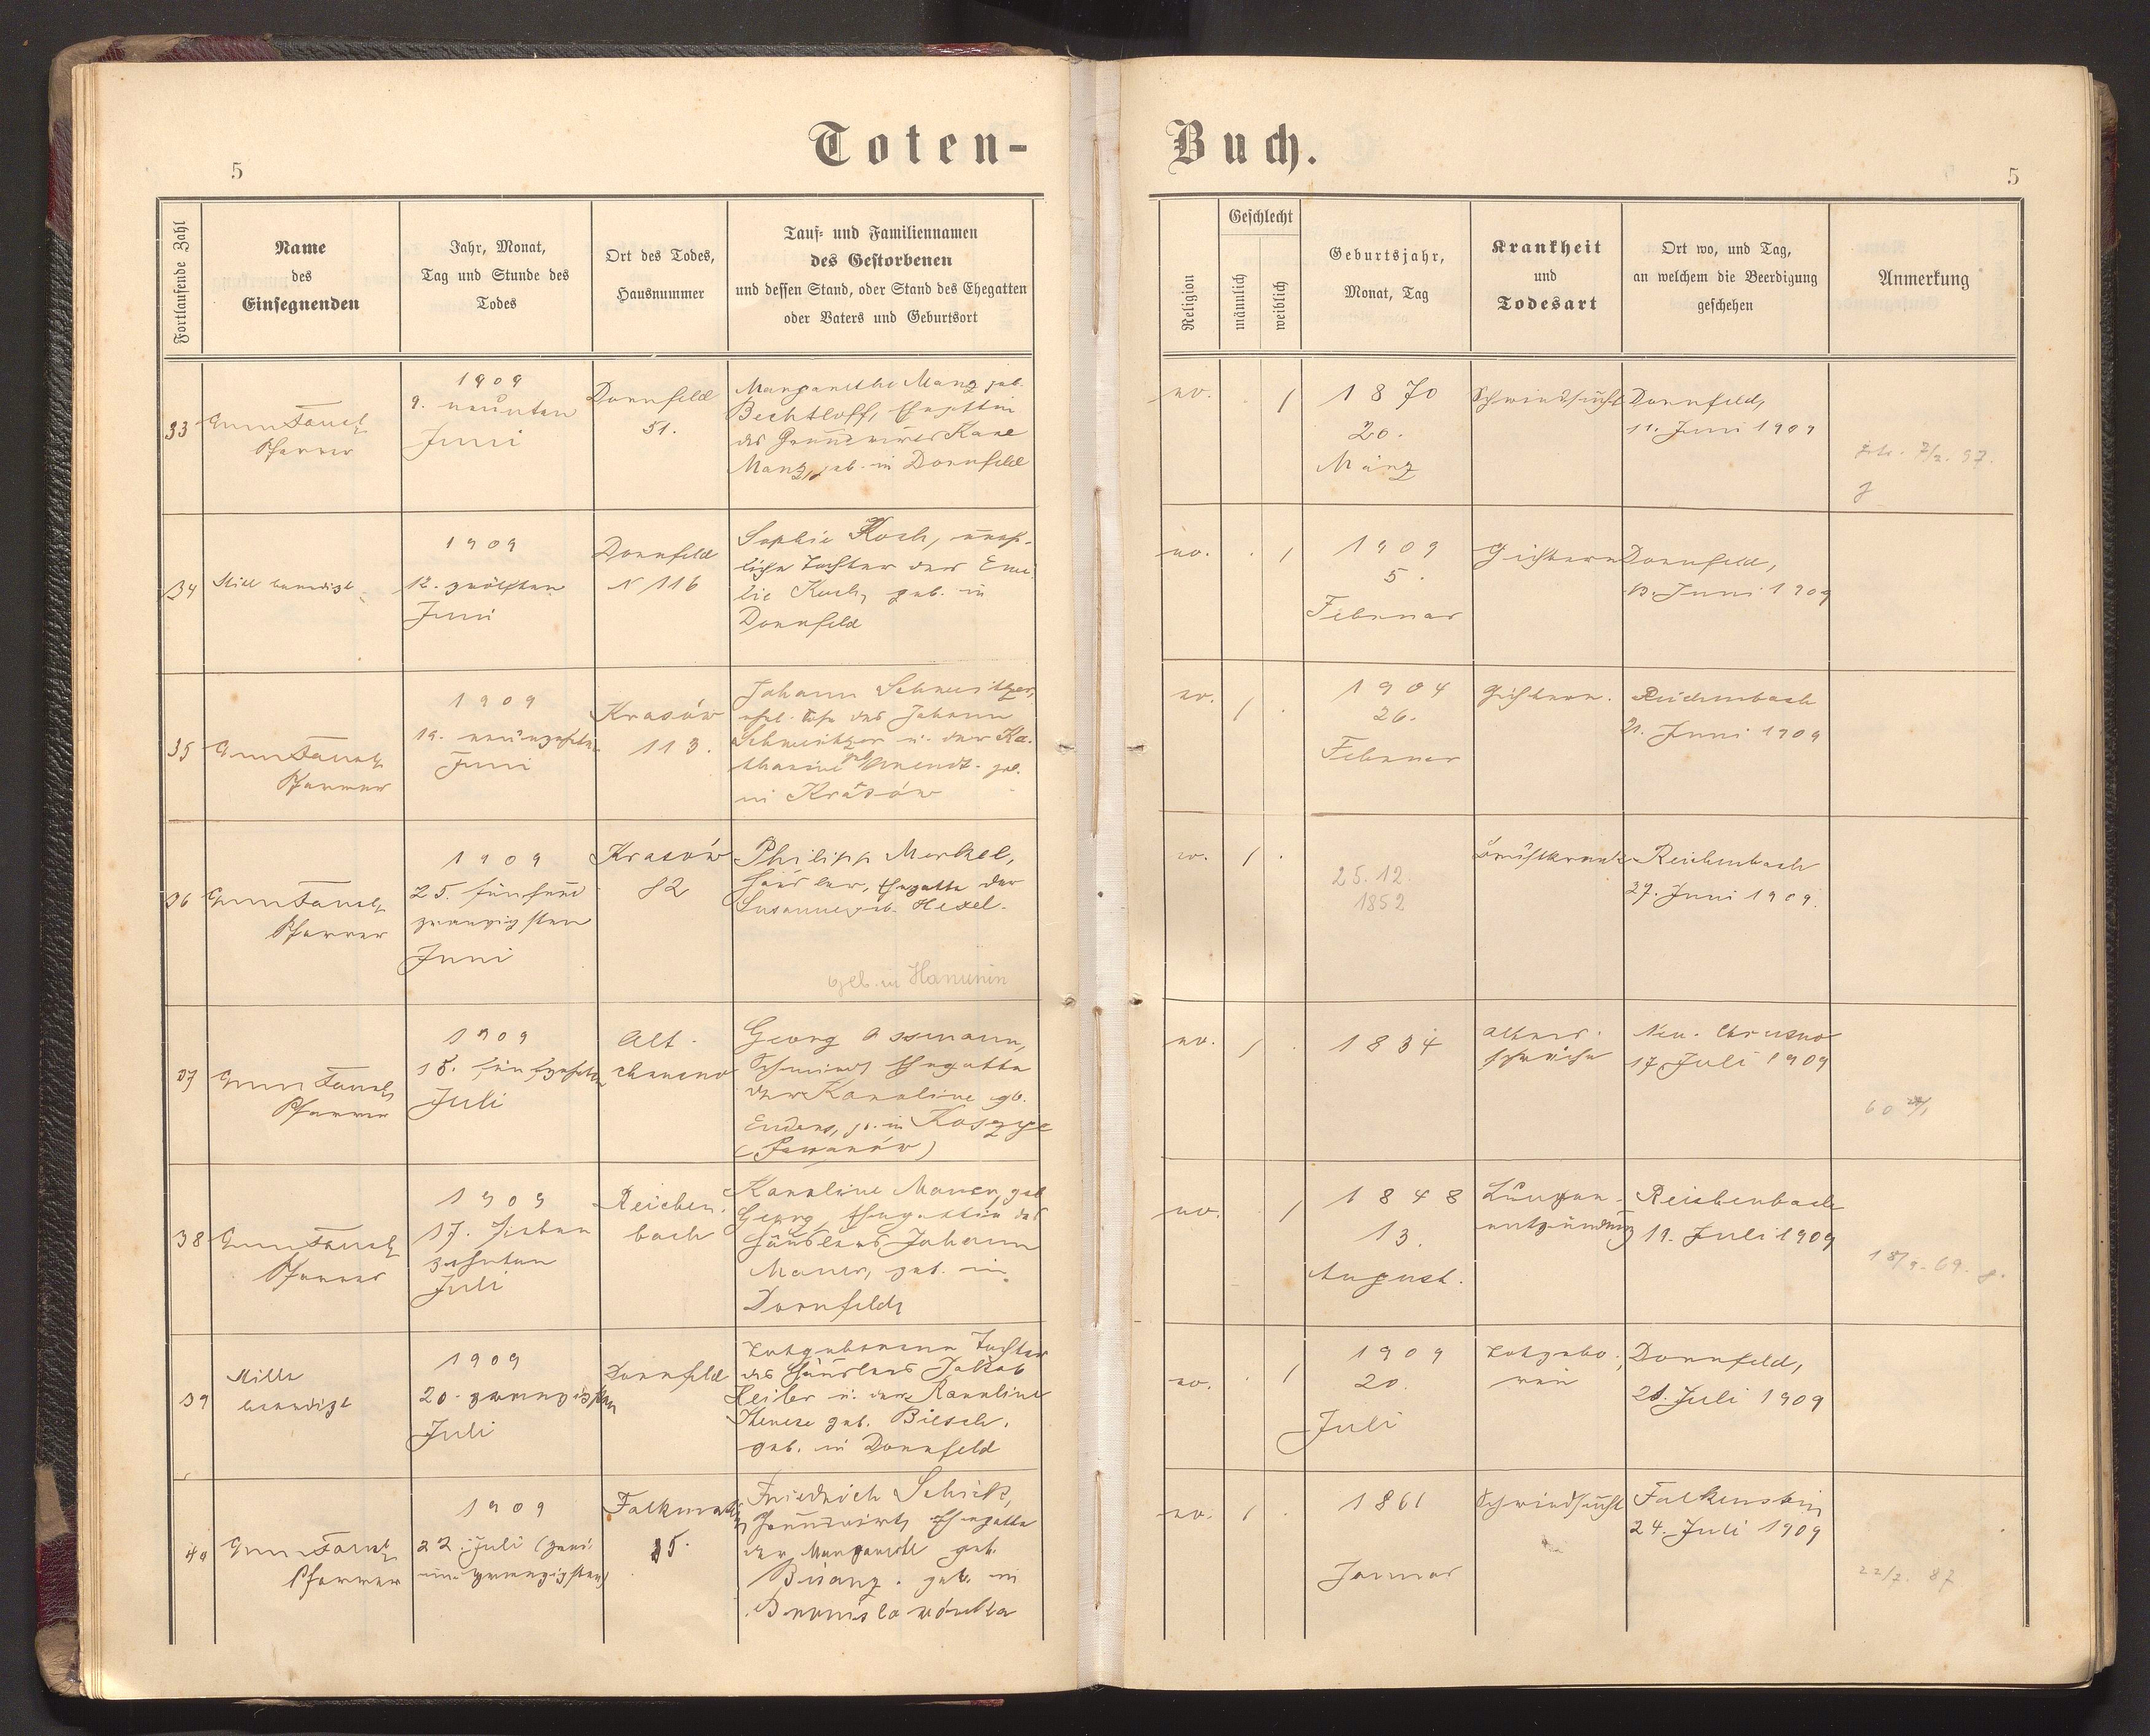 Toten-
Buch.
5
5
Fortlaufende Zahl
Name
des
Einsegnenden
Jahr, Monat,
Tag und Stunde des
Todes
Ort des Todes,
Hausnummer
Tauf- und Familiennamen
des Gestorbenen
und dessen Stand, oder Stand des Ehegatten
oder Vaters und Geburtsort
Religion
Geschlecht
männlich
weiblich
Geburtsjahr,
Monat, Tag
Krankheit
und
Todesart
Ort wo, und Tag,
an welchem die Beerdigung
geschehen
Anmerkung
33
Pfarrer
1909
9. neunten
Juni
Dornfeld
51.
Margarethe Manz geb.
Bechtloff, Ehegattin
des Grundwirtes
Manz, geb. in Dornfeld
ev.
/
1870
20.
März
Schwindsucht
Dornfeld,
11. Juni 1909
34
Still beerdigt
1909
12. zwölften
Juni
Dornfeld
N 116
Sophie Koch, uneh-
liche Tochter der Emi
lie Koch, geb. in
Dornfeld
ev.
. /
1909
5.
Februar
Gichtern
Dornfeld,
13. Juni 1909
35
Pfarrer
1909
19. neunzehnten
Juni
Krasów
113.
Johann Schweitzer,
ehel. Sohn des Johann
Schweitzer u. der Ka-
tharine geb. Arendt. geb.
in Krasów
ev.
/ .
1904
26.
Februar
Gichtern.
Reichenbach
21. Juni 1909
36
Pfarrer
1909
25. fünfund
zwanzigsten
Juni
Krasów
82
Philipp Merkel,
Häusler, Ehegatte der
Susanne geb. Hexel.
geb. in Hanunin
ev.
/ .
25.12.
1852
Brustkrank
Reichenbach
27. Juni 1909.
37
Pfarrer
1909
15. fünfzehnten
Juli
Alt-
chrusno
Georg Assmann,
Schmied Ehegatte
der Karoline gb.
Enders, gb. in
ev.
/ .
1834
Alters-
schwäche
Neu-Chrusno
17 Juli 1909
38
Pfarrer
1909
17. sieben
zehnten
Juli
Reichen-
bach
Karoline Mauer, geb
Georg, Ehegattin des
Häuslers Johann
Mauer, geb. in
Dornfeld
ev.
/
1848
13.
August.
Lungen-
entzündung
Reichenbach
19. Juli 1909
39
Stille
beerdigt
1909
20. zwanzigsten
Juli
Dornfeld
Totgeborene Tochter
des Häuslers Jakob
u. der Karoline
Therese geb. Biesch.
geb. in Dornfeld
ev.
. /
1909
20.
Juli
Totgebo-
ren
Dornfeld,
21. Juli 1909
40
Pfarrer
1909
22. Juli (zwei
und zwanzigsten)
Falkenstein
15.
Friedrich Schick,
Grundwirt, Ehegatte
der Margarethe geb.
geb. in
ev.
/ .
1861
Januar
Schwindsucht
Falkenstein
24. Juli 1909
22/2. 87